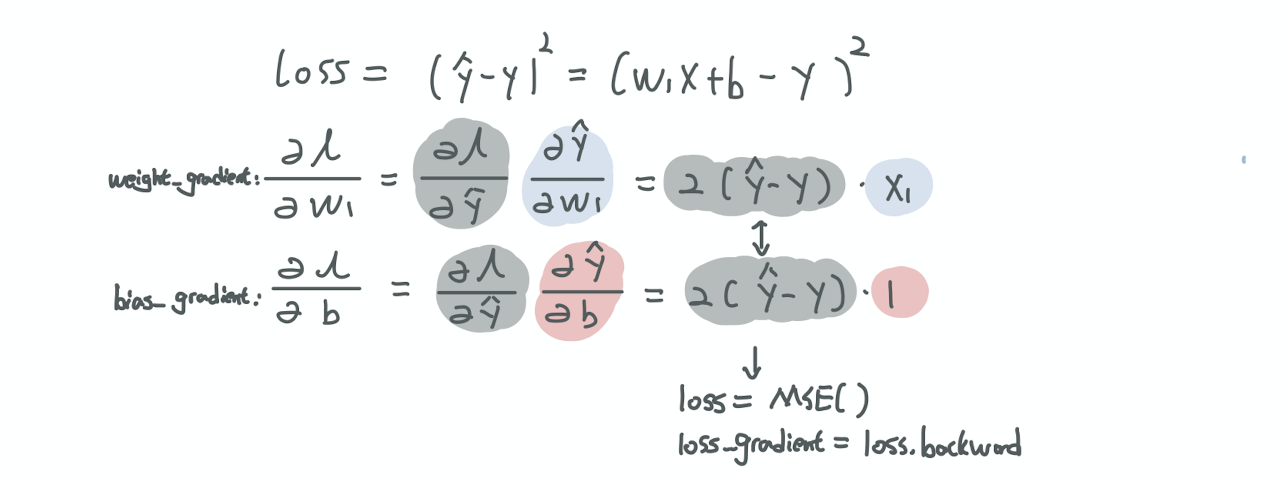 loss = (ŷ-y)² = (w₁x+b-y)²
weight_gradient: ∂l/∂w₁ = ∂l/∂ŷ ∂ŷ/∂w₁ = 2(ŷ-y)·x₁
↕
bias_gradient: ∂l/∂b = ∂l/∂ŷ ∂ŷ/∂b = 2(ŷ-y)·1
↓
loss = MSE()
loss_gradient = loss.backward